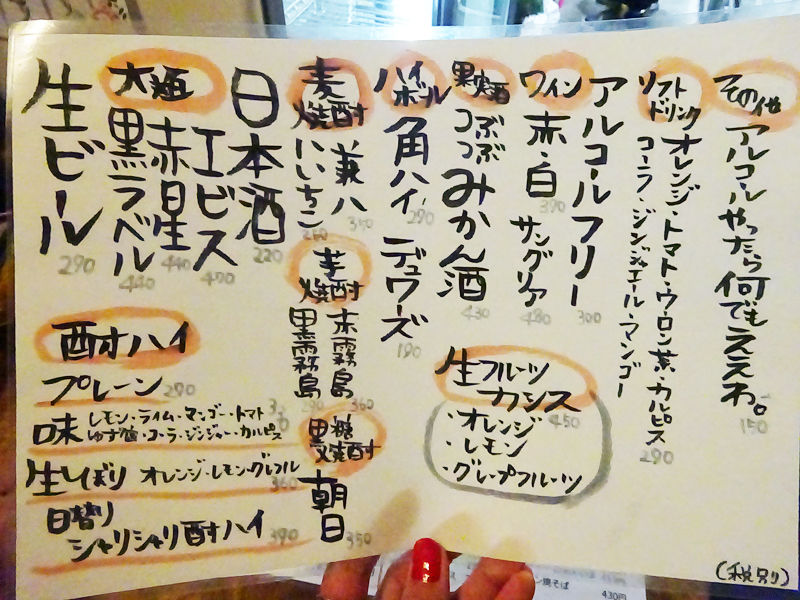 生ビール
290
大瓶
黒ラベル
440
赤星
440
エビス
470
日本酒
220
麦焼酎
いいちこ
兼八
350
芋焼酎
黒霧島
赤霧島
360
黒糖焼酎
朝日
350
ハイボール
角ハイ
290
デュワーズ
190
果実酒
つぶつぶ
みかん酒
430
ワイン
赤・白
390
サングリア
480
アルコールフリー
300
ソフトドリンク
オレンジ・トマト・ウーロン茶・カルピス
コーラ・ジンジャエール・マンゴー
290
その他
アルコールやったら何でもええわ。
150
酎ハイ
プレーン 290
味 レモン・ライム・マンゴー・トマト
ゆず蜜・コーラ・ジンジャー・カルピス
生しぼり オレンジ・レモン・グレフル
360
日替り
シャリシャリ酎ハイ 390
生フルーツ
カシス
450
・オレンジ
・レモン
・グレープフルーツ
(税別)
焼そば
430円